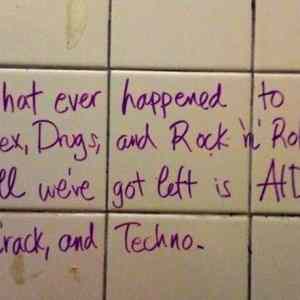 hat ever happened to
ex, Drugs, and Rock 'n' Ro
ll we've got left is AID
rack, and Techno.